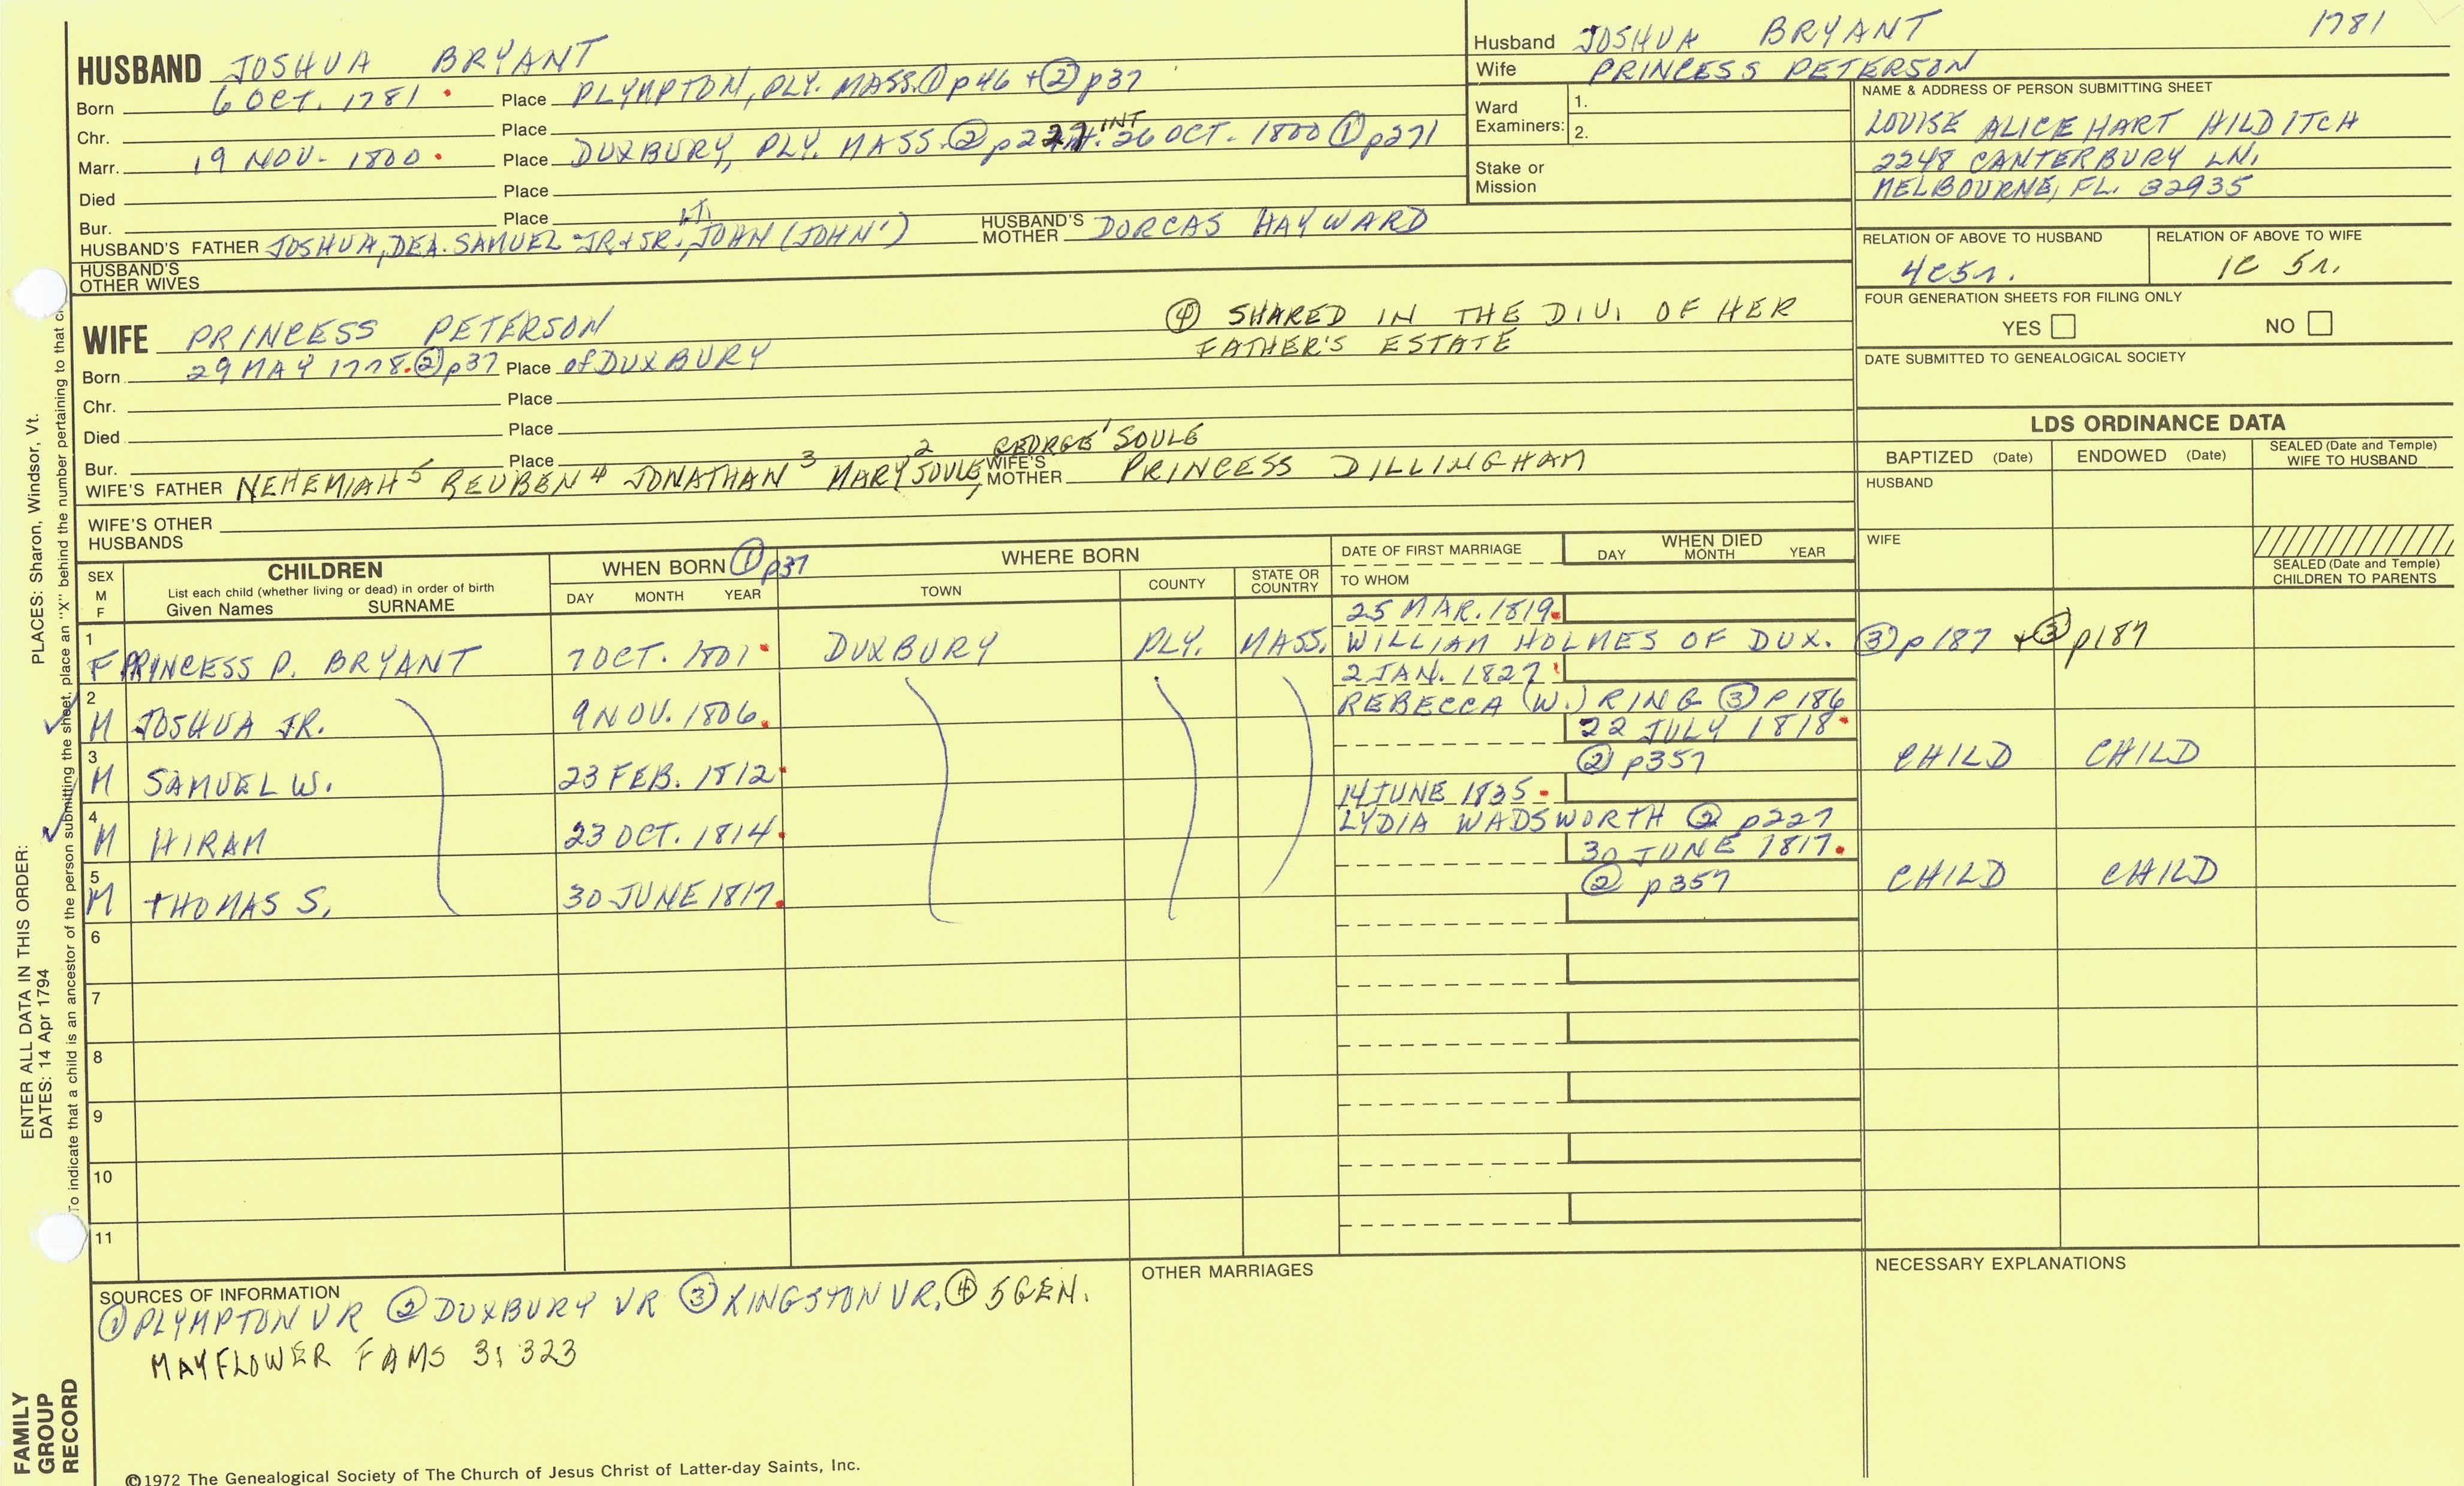 HUSBAND JOSHUA BRYANT
Born 6 OCT. 1781 Place PLYMPTON, PLY. MASS. ① p46 + ② p37
Chr. Place
Marr. 19 NOV. 1800 Place DUXBURY, PLY. MASS. ② p227 INT. 26 OCT. 1800 ① p271
Died Place
Bur. Place
HUSBAND'S FATHER JOSHUA, DEA. SAMUEL JR & SR, LT. JOHN (JOHN') HUSBAND'S MOTHER DORCAS HAYWARD
HUSBAND'S OTHER WIVES
WIFE PRINCESS PETERSON
④ SHARED IN THE DIV. OF HER
FATHER'S ESTATE
Born 29 MAY 1778. ② p37 Place of DUXBURY
Chr. Place
Died Place
Bur. Place
GEORGE¹ SOULE
WIFE'S FATHER NEHEMIAH⁵ REUBEN⁴ JONATHAN³ MARY² SOULE, WIFE'S MOTHER PRINCESS DILLINGHAM
WIFE'S OTHER HUSBANDS
Husband JOSHUA BRYANT 1781
Wife PRINCESS PETERSON
Ward Examiners: 1.
2.
Stake or Mission
NAME & ADDRESS OF PERSON SUBMITTING SHEET
LOUISE ALICE HART HILDITCH
2248 CANTERBURY LN.
MELBOURNE, FL. 32935
RELATION OF ABOVE TO HUSBAND RELATION OF ABOVE TO WIFE
4C5r. 1C 5r.
FOUR GENERATION SHEETS FOR FILING ONLY
YES NO
DATE SUBMITTED TO GENEALOGICAL SOCIETY
LDS ORDINANCE DATA
BAPTIZED (Date) ENDOWED (Date) SEALED (Date and Temple) WIFE TO HUSBAND
HUSBAND
WIFE
SEALED (Date and Temple) CHILDREN TO PARENTS
SEX M F
CHILDREN
List each child (whether living or dead) in order of birth
Given Names SURNAME
WHEN BORN ① p37
DAY MONTH YEAR
WHERE BORN
TOWN COUNTY STATE OR COUNTRY
DATE OF FIRST MARRIAGE
TO WHOM
WHEN DIED
DAY MONTH YEAR
25 MAR. 1819.
1 F PRINCESS P. BRYANT 7 OCT. 1801 DUXBURY PLY. MASS. WILLIAM HOLMES OF DUX. ③ p187 + ③ p187
2 JAN. 1827
2 M JOSHUA JR. 9 NOV. 1806. REBECCA (W.) RING ③ P186
22 JULY 1818
3 M SAMUEL W. 23 FEB. 1812 ② p357 CHILD CHILD
14 JUNE 1835
4 M HIRAM 23 OCT. 1814 LYDIA WADSWORTH ② p227
30 JUNE 1817.
5 M THOMAS S. 30 JUNE 1817. ② p357 CHILD CHILD
6
7
8
9
10
11
SOURCES OF INFORMATION
① PLYMPTON VR ② DUXBURY VR ③ KINGSTON VR, ④ 5 GEN.
MAYFLOWER FAMS 3: 323
OTHER MARRIAGES
NECESSARY EXPLANATIONS
©1972 The Genealogical Society of The Church of Jesus Christ of Latter-day Saints, Inc.
FAMILY GROUP RECORD
ENTER ALL DATA IN THIS ORDER:
DATES: 14 Apr 1794
PLACES: Sharon, Windsor, Vt.
To indicate that a child is an ancestor of the person submitting the sheet, place an "X" behind the number pertaining to that